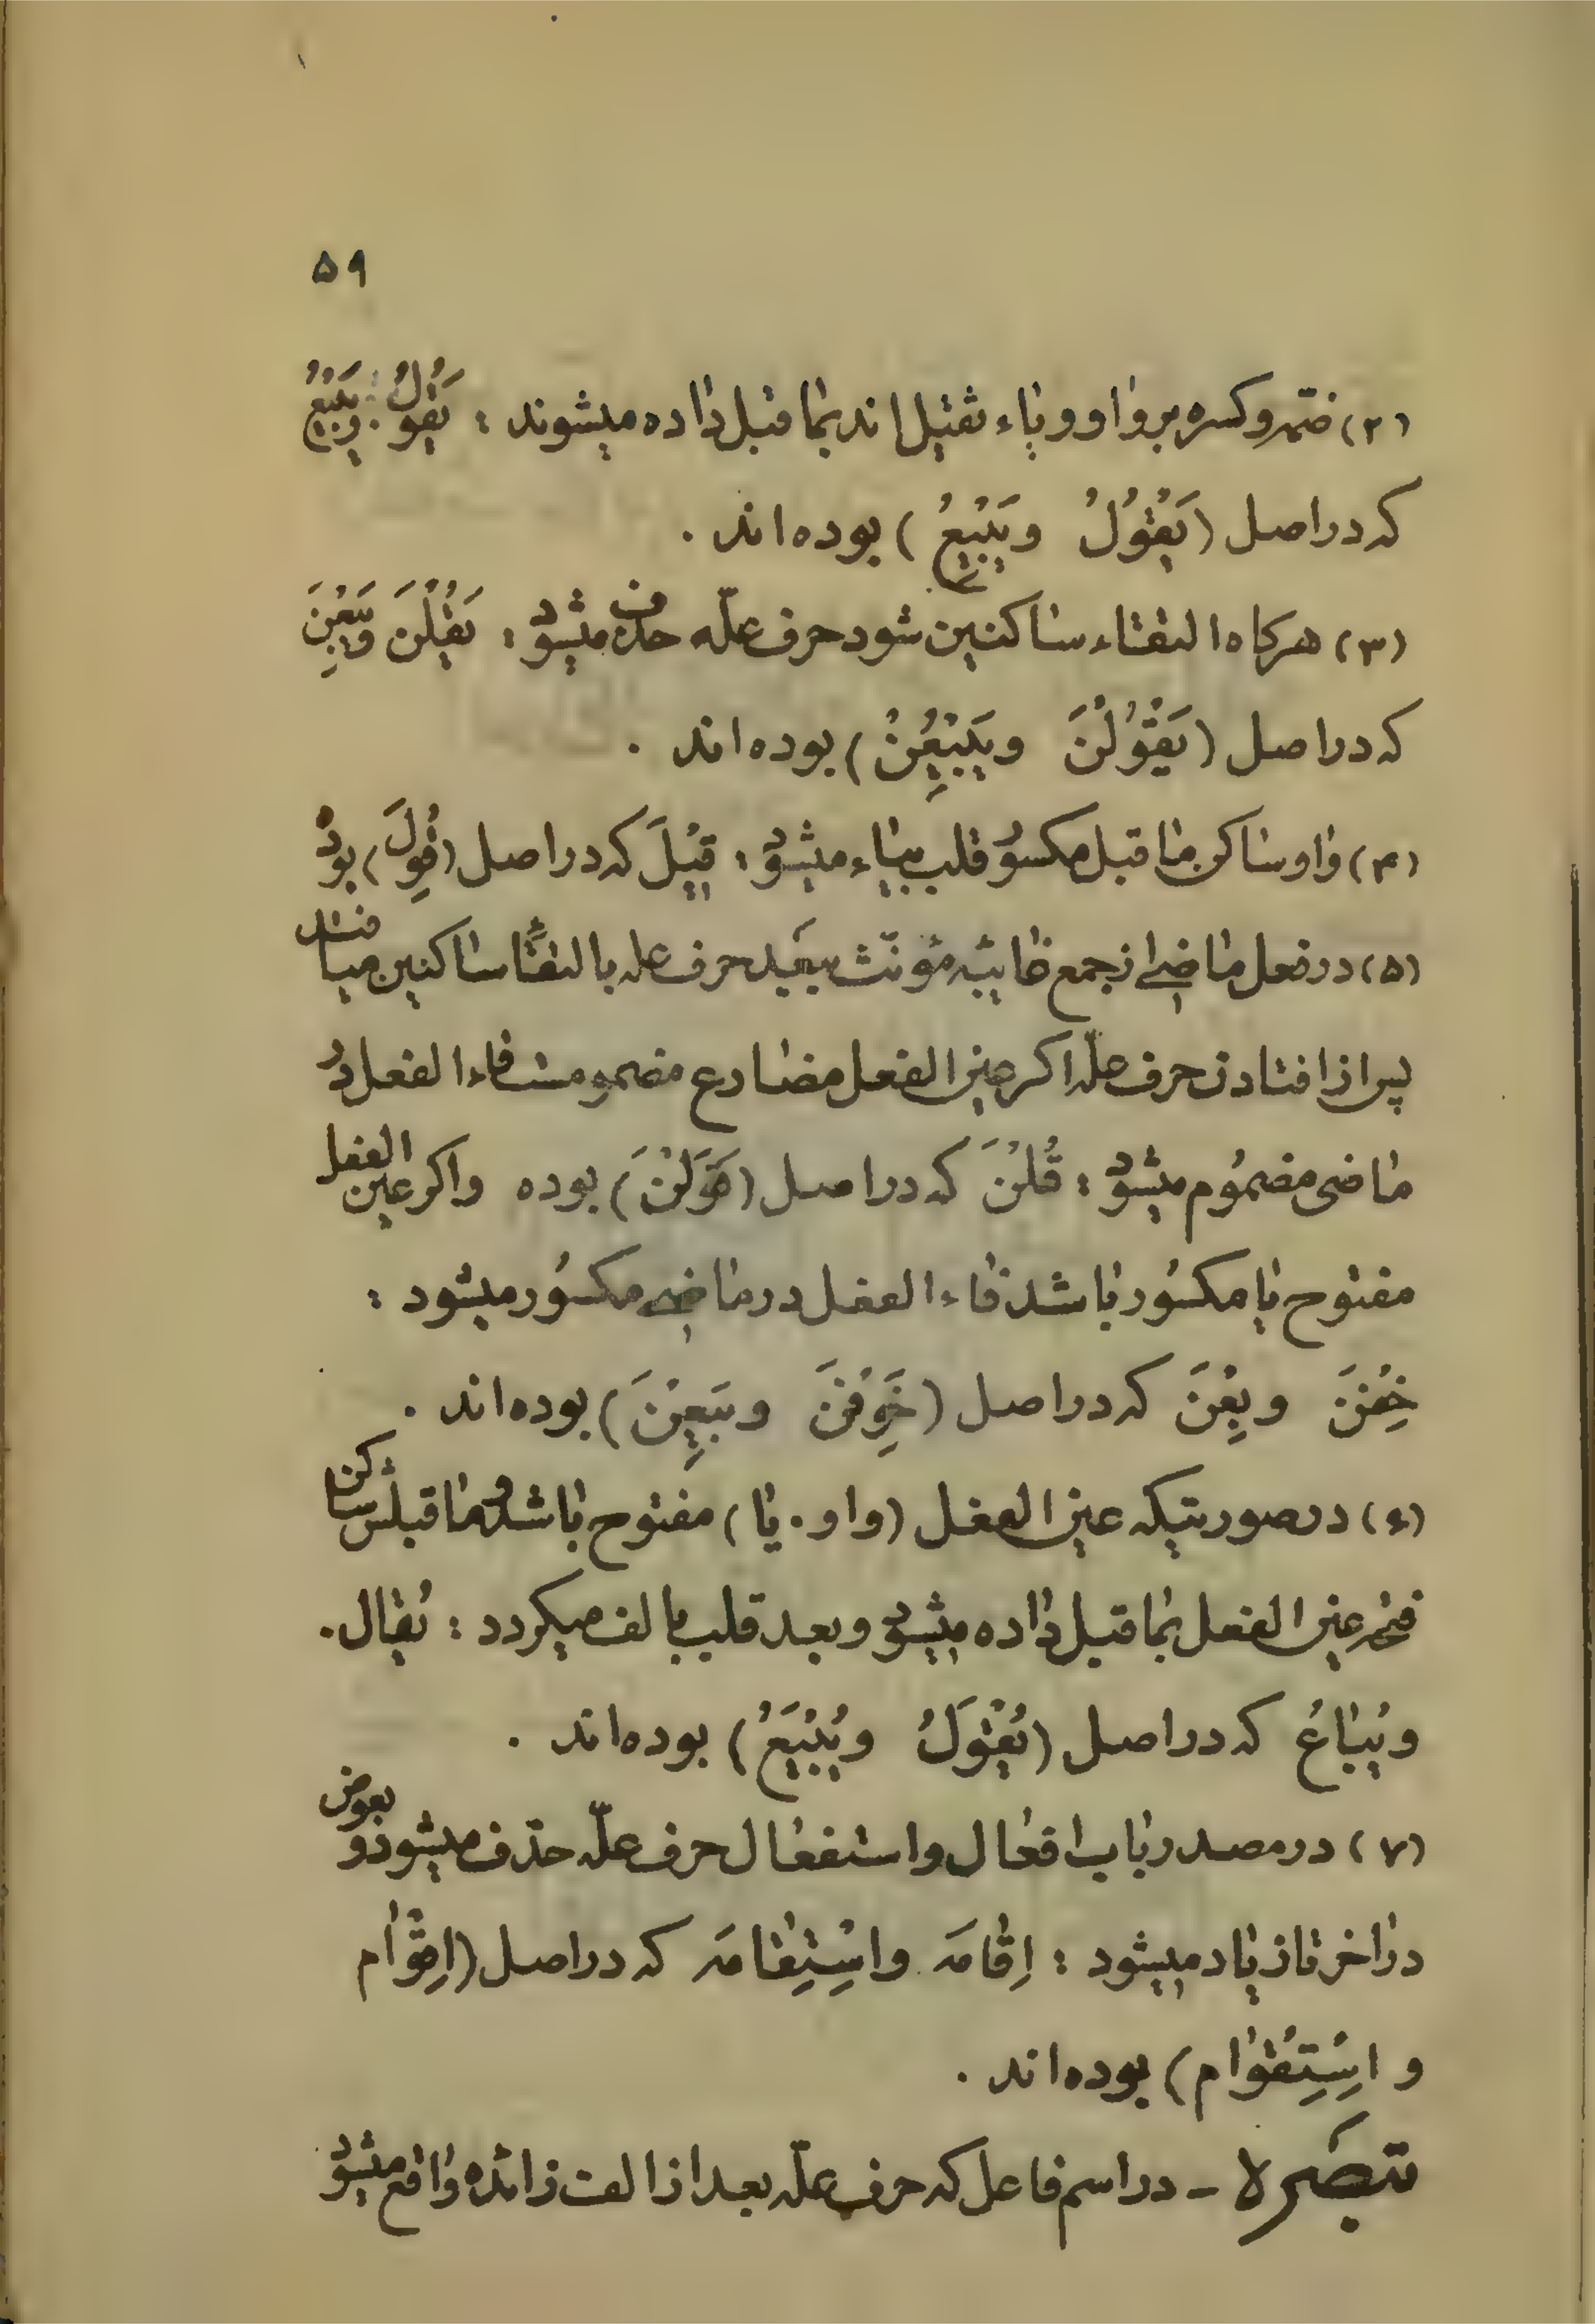 ۵۹
(۲) ضمّه و کسره بر واو و یاء ثقیل اند بما قبل داده میشوند : یَقُولُ . وَیَبیعُ
که در اصل (یَقْوُلُ وَیَبْیِعُ) بوده‌اند .
(۳) هرگاه التقاء ساکنین شود حرف علّه حذف میشود : یَقُلْنَ وَیَبِعْنَ
که در اصل (یَقْوُلْنَ وَیَبْیِعْنَ) بوده‌اند .
(۴) واو ساکن ما قبل مکسور قلب بیاء میشود : قیْلَ که در اصل (قُوِلَ) بود
(۵) در فعل ماضی از جمع غایبه مؤنّث ببعد حرف عله بالتقاء ساکنین میافتد
پس از افتادن حرف علّه اگر عین الفعل مضارع مضموم است فاء الفعل در
ماضی مضمُوم میشود : قُلْنَ که در اصل (قَوَلْنَ) بوده واگر عین الفعل
مفتوح یا مکسُور باشد فاء الفعل در ماضی مکسُور میشود :
خِفْنَ وبِعْنَ که در اصل (خَوِفْنَ وبَیَعْنَ) بوده‌اند .
(۶) در صورتیکه عین الفعل (واو . یا) مفتوح باشد و ما قبلش ساکن
فتحه عین الفعل بما قبل داده میشود و بعد قلب بالف میگردد : یُقال .
ویُباعُ که در اصل (یُقْوَلُ ویُبْیَعُ) بوده‌اند .
(۷) در مصدر باب افعال واستفعال حرف علّه حذف میشود و بعوض
در اخر تا زیاد میشود : اِقامَه واسْتِقامَه که در اصل (اِقْوام
و اسْتِقْوام) بوده‌اند .
تبصَره - در اسم فاعل که حرف علّه بعد از الف زائده واقع میشود